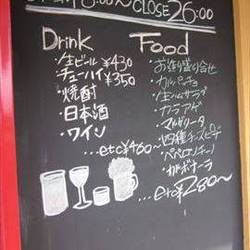 CLOSE 26:00
Drink
・生ビール ¥430
・チューハイ ¥350
・焼酎
・日本酒
・ワイン
...etc ¥460〜
Food
・お造り盛り合せ
・カルパッチョ
・生ハムサラダ
・カラアゲ
・マルゲリータ
・四種チーズピザ
・ペペロンチーノ
・カルボナーラ
...etc ¥280〜